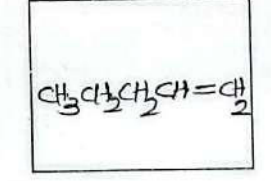 CH₃CH₂CH₂CH=CH₂